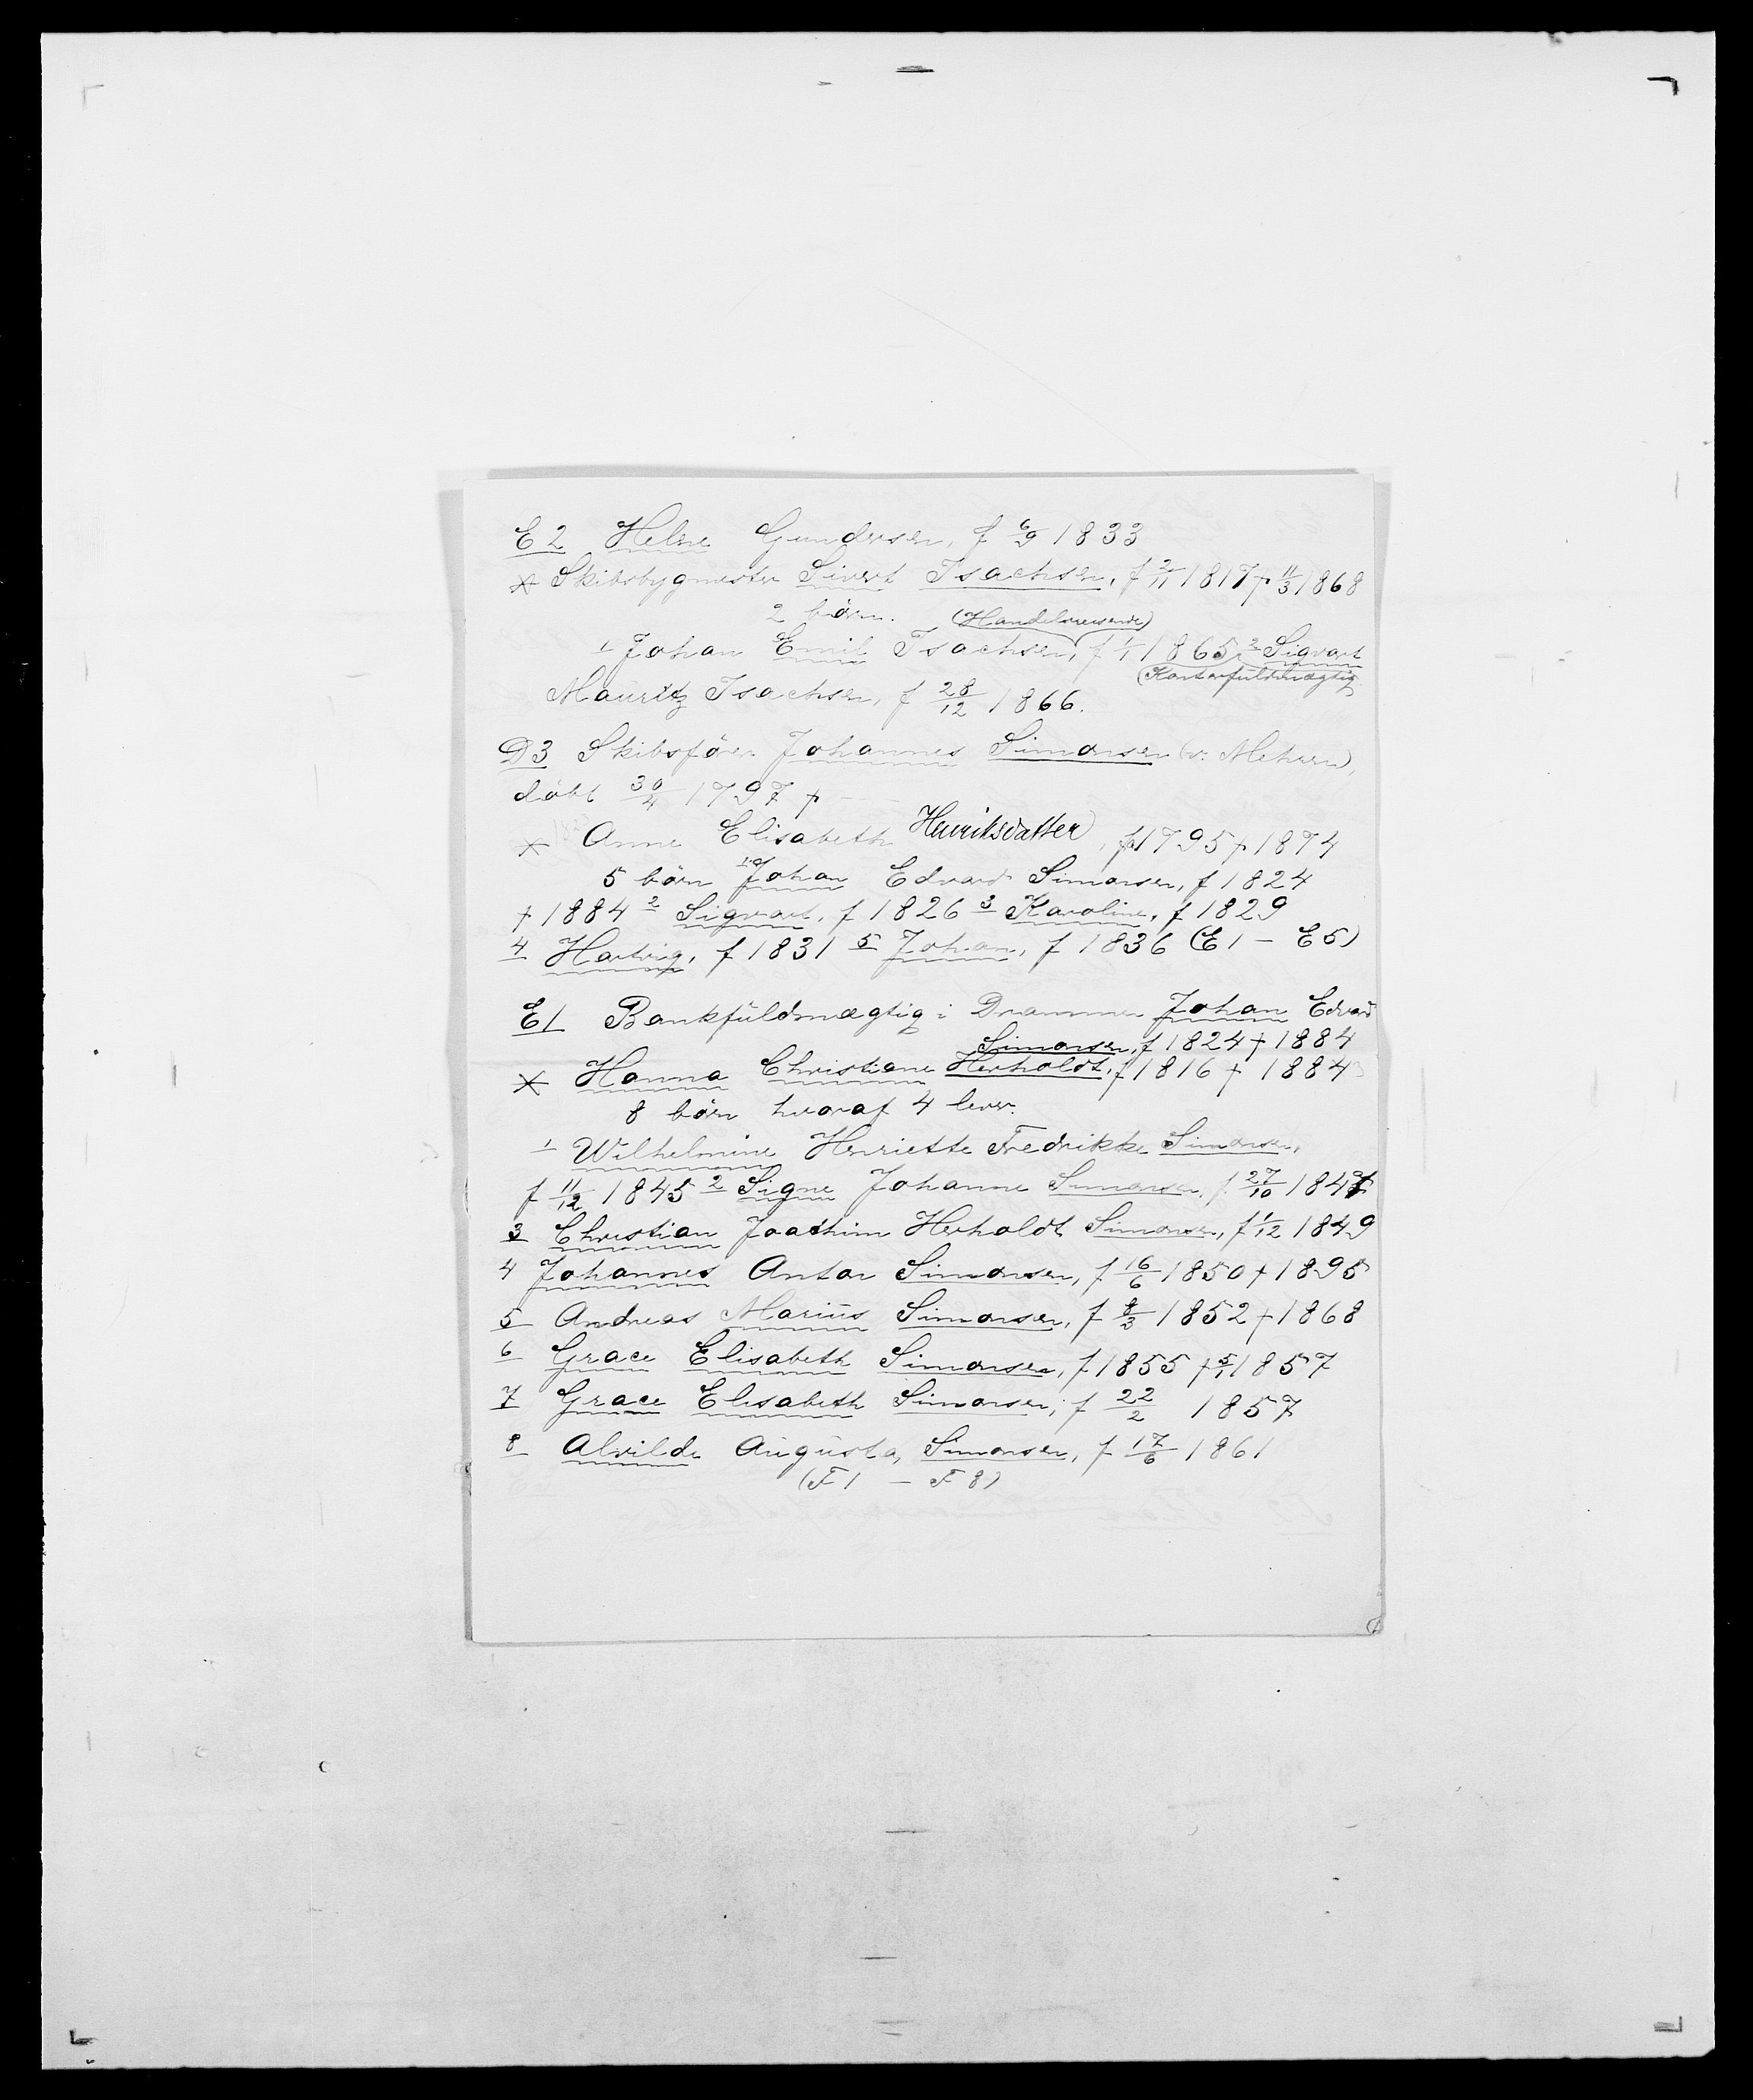 E2 Helene Gundersen, f 6/9 1833
* Skibsbygmester Sivert Isachsen, f 2/11 1817 † 11/3 1868
2 börn. (Handelsreisende)
1 Johan Emil Isachsen, f 1/1 1865 2 Sigvart
(Kontorfüldmægtig)
Mauritz Isachsen, f 28/12 1866.
D3 Skibsförer Johannes Simonsen (v. Mehren),
döbt 30/4 1797 †
* Anne Elisabeth Henriksdatter, f 1795 † 1874
5 börn 1 Johan Edvard Simonsen, f 1824
† 1884 2 Sigvart, f 1826 3 Karoline, f 1829
4 Hartvig, f 1831 5 Johan, f 1836 (E1 – E5)
E1 Bankfüldmægtig i Drammen Johan Edvard
Simonsen, f 1824 † 1884
* Hanna Christiane Herholdt, f 1816 † 1884
8 börn hvoraf 4 lever.
1 Wilhelmine Henriette Fredrikke Simonsen,
f 11/12 1845 2 Signe Johanne Simonsen, f 27/10 1847
3 Christian Joachim Herholdt Simonsen, f 1/12 1849
4 Johannes Anton Simonsen, f 16/6 1850 † 1895
5 Andreas Marius Simonsen, f 8/3 1852 † 1868
6 Grace Elisabeth Simonsen, f 1855 † 5/1 1857
7 Grace Elisabeth Simonsen, f 22/2 1857
8 Alvilde Augusta, Simonsen, f 17/6 1861
(F1 – F8)